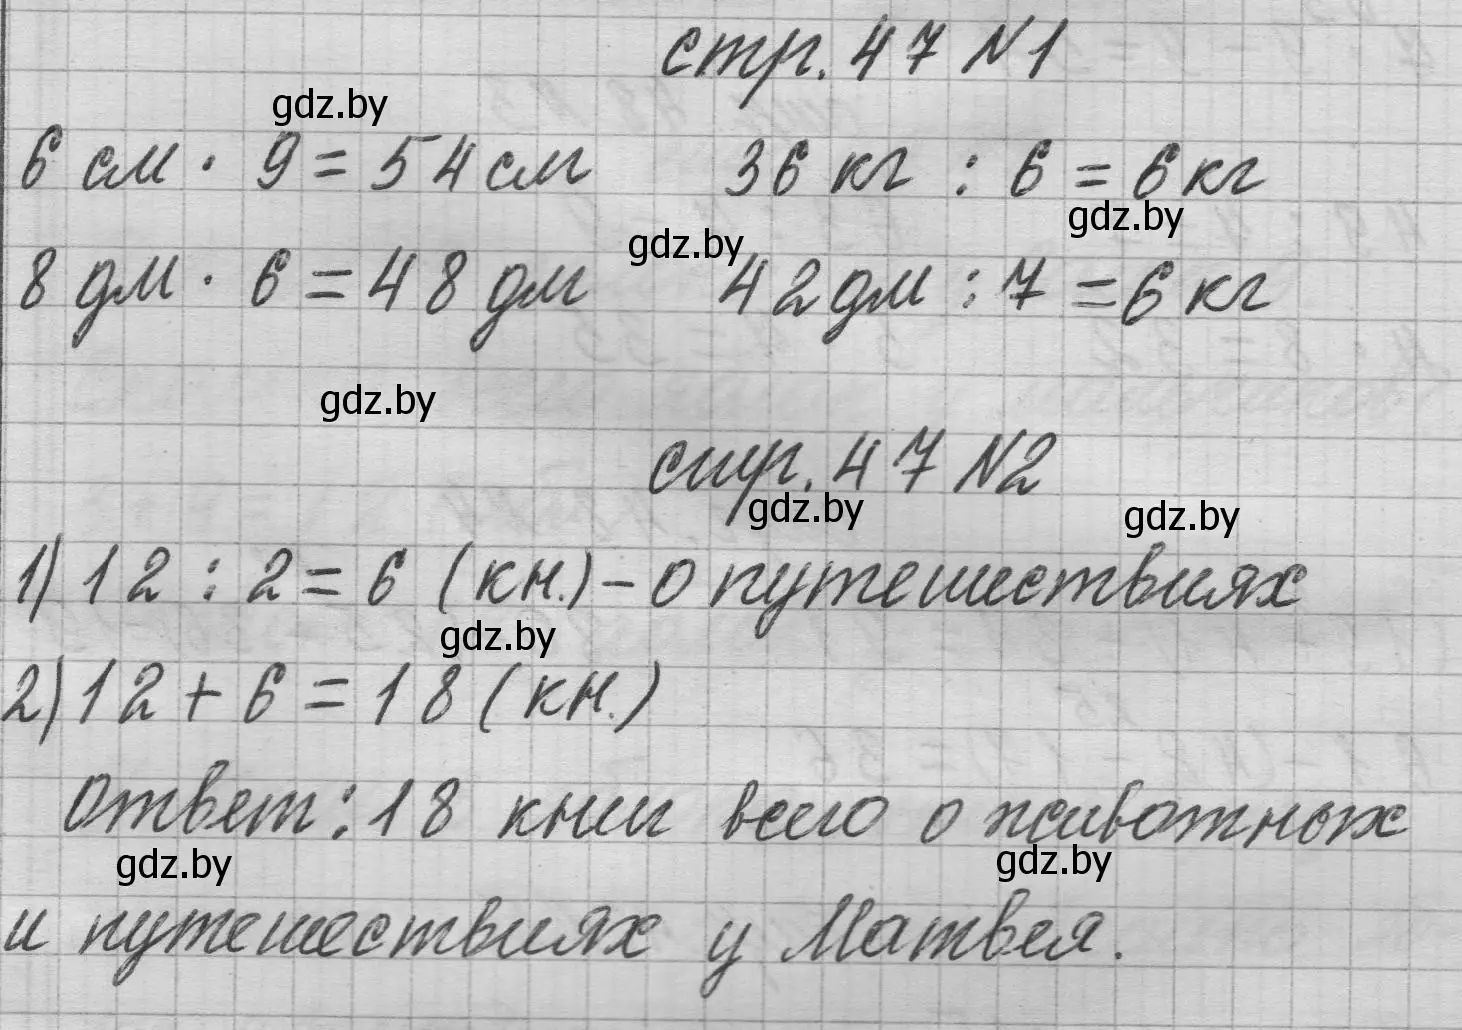 стр. 47 №1
gdz.by
6 см · 9 = 54 см 36 кг : 6 = 6 кг
gdz.by
gdz.by
8 дм · 6 = 48 дм 42 дм : 7 = 6 кг
gdz.by
стр. 47 №2
gdz.by
gdz.by
1) 12 : 2 = 6 (кн.) – о путешествиях
gdz.by
2) 12 + 6 = 18 (кн.)
Ответ: 18 книг всего о животных
gdz.by
gdz.by
и путешествиях у Матвея.